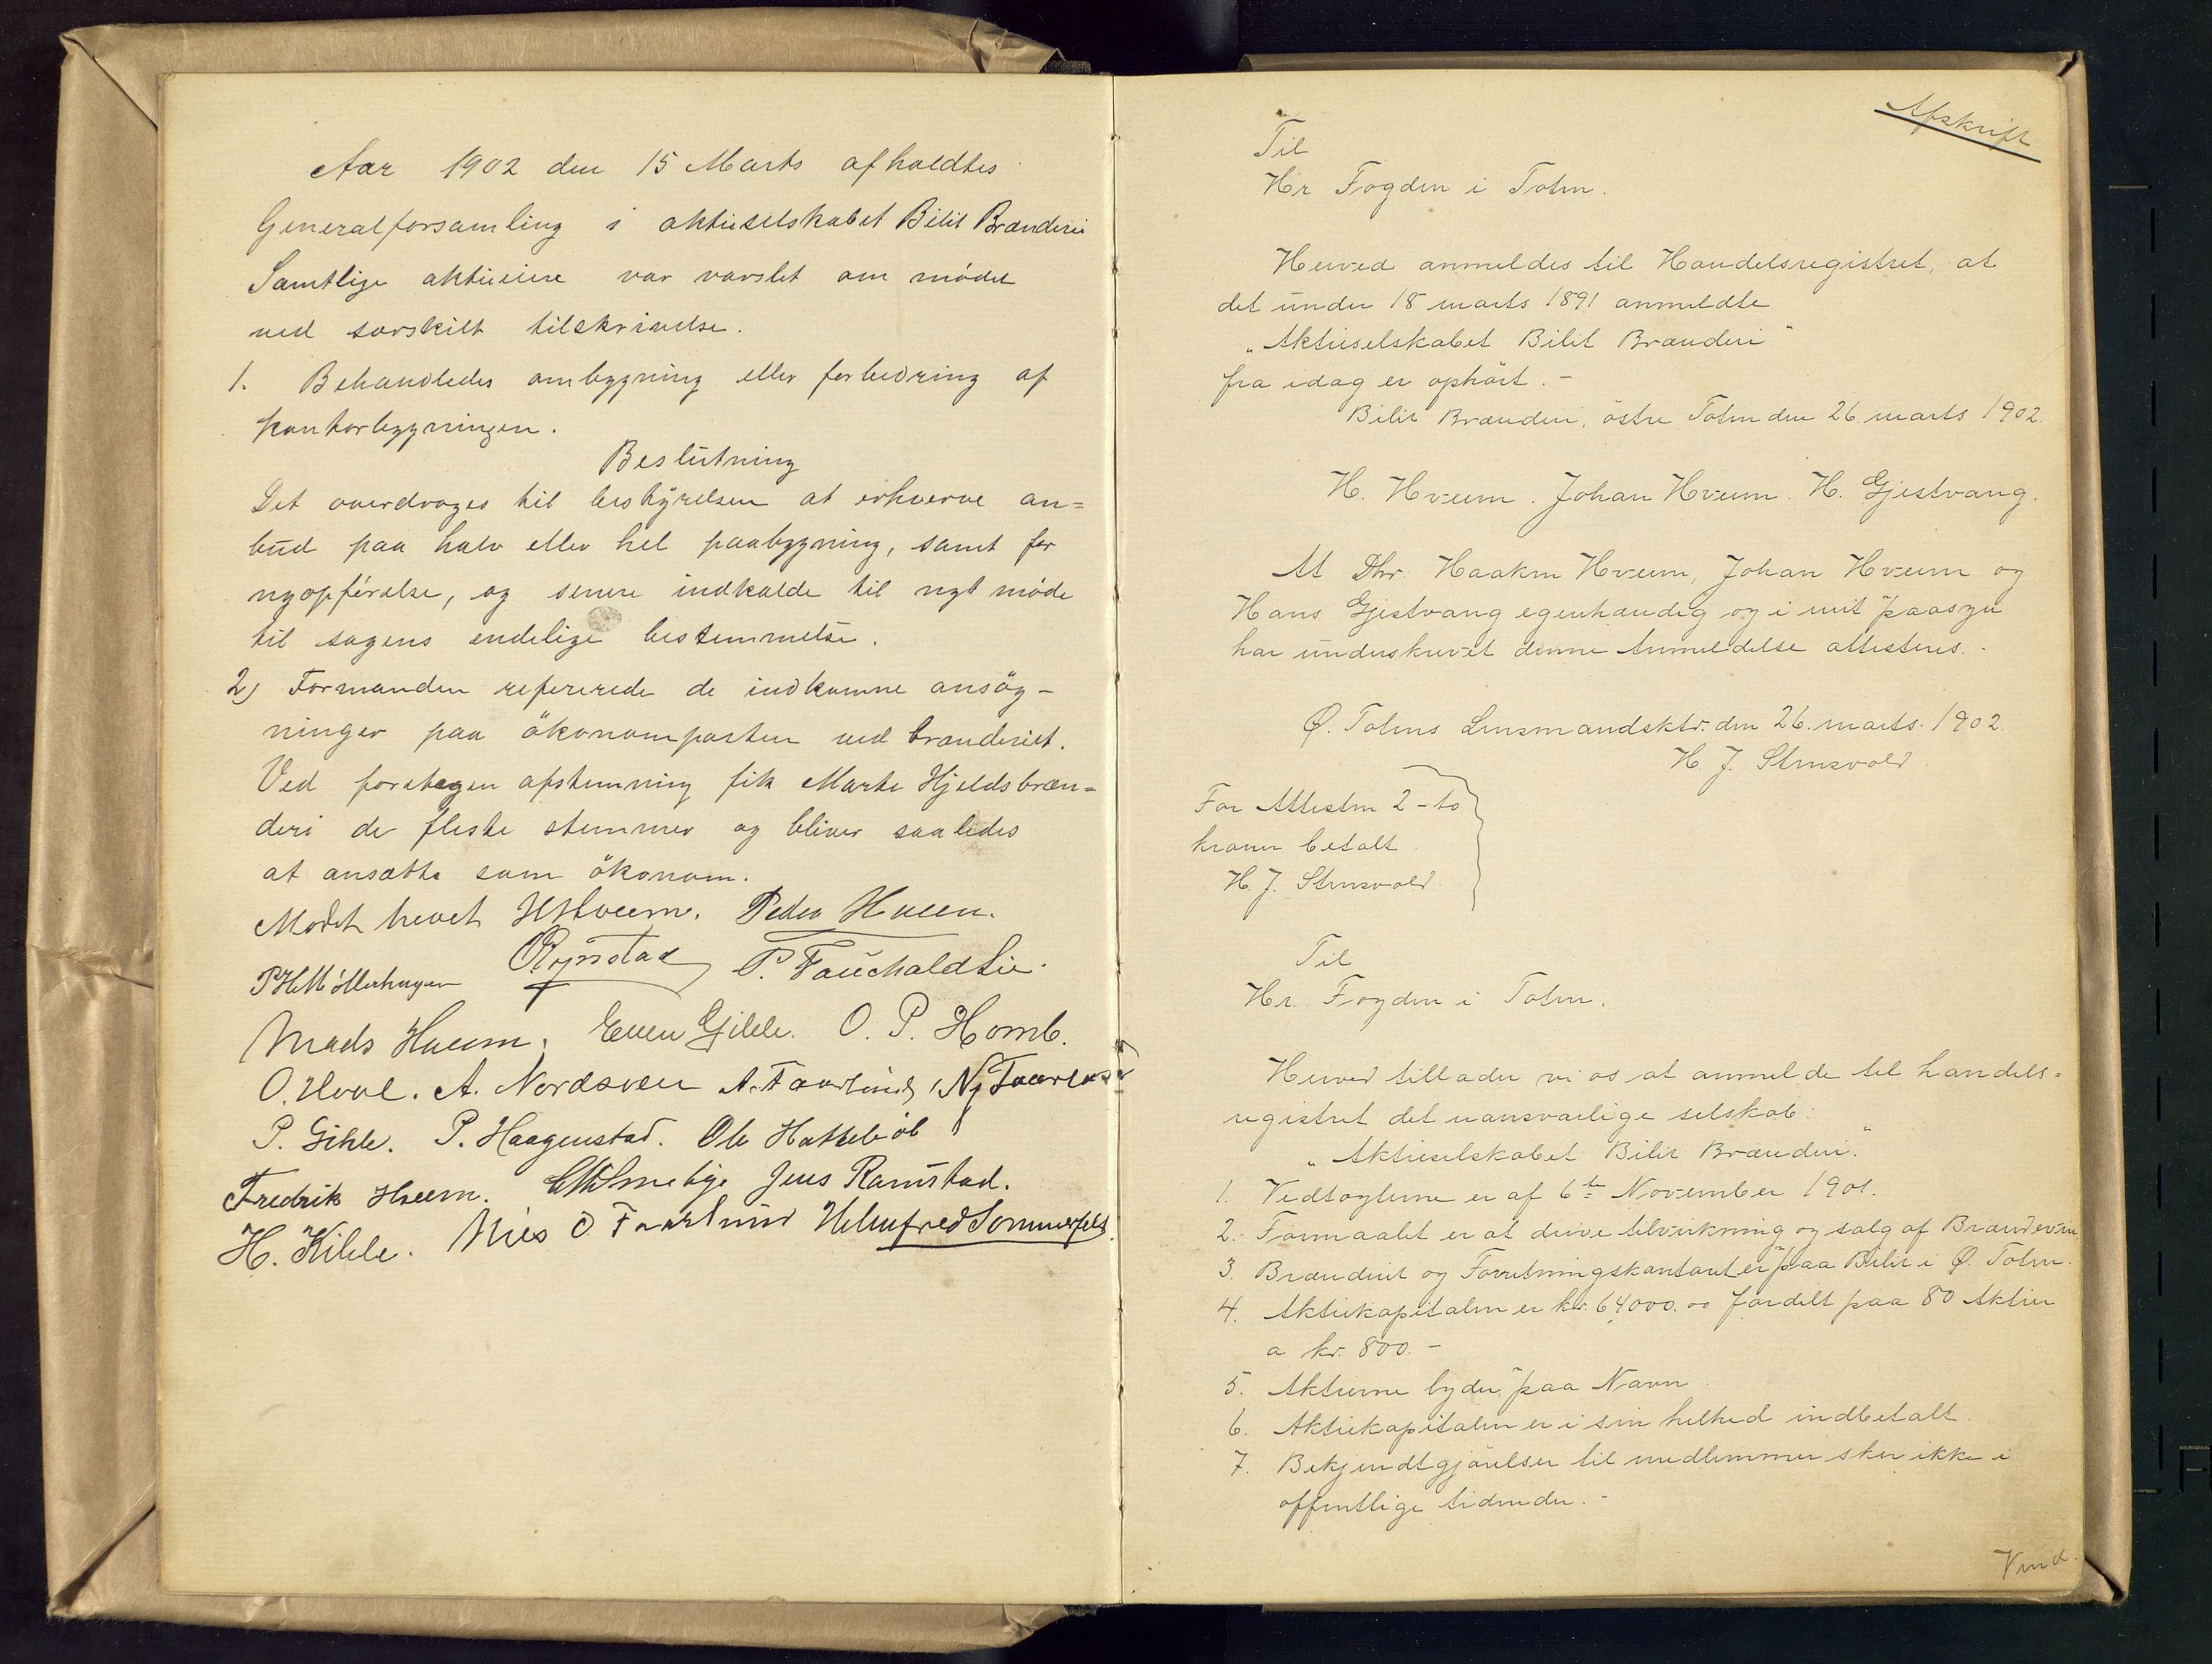 Aar 1902 den 15 Marts afholdtes
Generalforsamling i aktieselskabet Bilit Brænderi
Samtlige aktieeiere var varslet om mödet
ved særskilt tilskrivelse.
1. Behandledes ombygning eller forbedring af
kontorbygningen.
Beslutning
Det overdrages til bestyrelsen at erhverve an=
bud paa halv eller hel paabygning, samt for
nyopförelse, og senere indkalde til nyt möde
til sagens endelige bestemmelse.
2) Formanden refererede de indkomne ansög-
ninger paa ökonomposten ved brænderiet.
Ved foretagen afstemning fik Marte Hjeldsbræn=
deri de fleste stemmer og bliver saaledes
at ansætte som ökonom.
Mödet hevet HHveem. Peder Hveem.
PHMöllerhagen P. Fauchald Lie.
Mads Hveem. Even Gihle. O. P. Homb.
O. Hoel. A. Nordsveen A. Faarlund, Nj Faarlund
P. Gihle. P. Haagenstad. Ole Hatteböl
Fredrik Hveem. Jens Ramstad.
H. Kihle. Nils O Faarlund Helmfred Sommerfelt.
Afskrift
Til
Hr Fogden i Toten.
Herved anmeldes til Handelsregistret, at
det under 18 marts 1891 anmeldte
„Aktieselskabet Bilit Brænderi"
fra idag er ophört. -
Bilit Brænderi, östre Toten den 26. marts 1902.
H. Hveem. Johan Hveem. H. Gjestvang.
At Dhr. Haaken Hveem, Johan Hveem og
Hans Gjestvang egenhændig og i mit paasyn
har underskrevet denne Anmeldelse attesteres. -
Ø. Totens Lensmandsktr. den 26. marts. 1902.
H. J. Stensvold.
For Attesten 2 - to
kroner betalt.
H. J. Stensvold.
Til
Hr. Fogden i Toten.
Herved tillader vi os at anmelde til handels=
registret det uansvarlige selskab:
„Aktieselskabet Bilit Brænderi."
1. Vedtægterne er af 6te November 1901.
2. Formaalet er at drive tilvirkning og salg af Brændevin.
3. Brænderiet og Forretningskontoret er paa Bilit i Ø. Toten.
4. Aktiekapitalen er kr. 64000.00 fordelt paa 80 Aktier
a kr. 800. -
5. Aktierne lyder paa Navn.
6. Aktiekapitalen er i sin helhed indbetalt.
7. Bekjendtgjörelser til medlemmer sker ikke i
offentlige tidender. -
Vend.